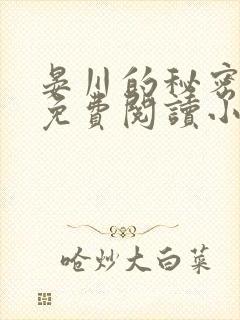 晏川的秘密
免費閱讀小
嗆炒大白菜